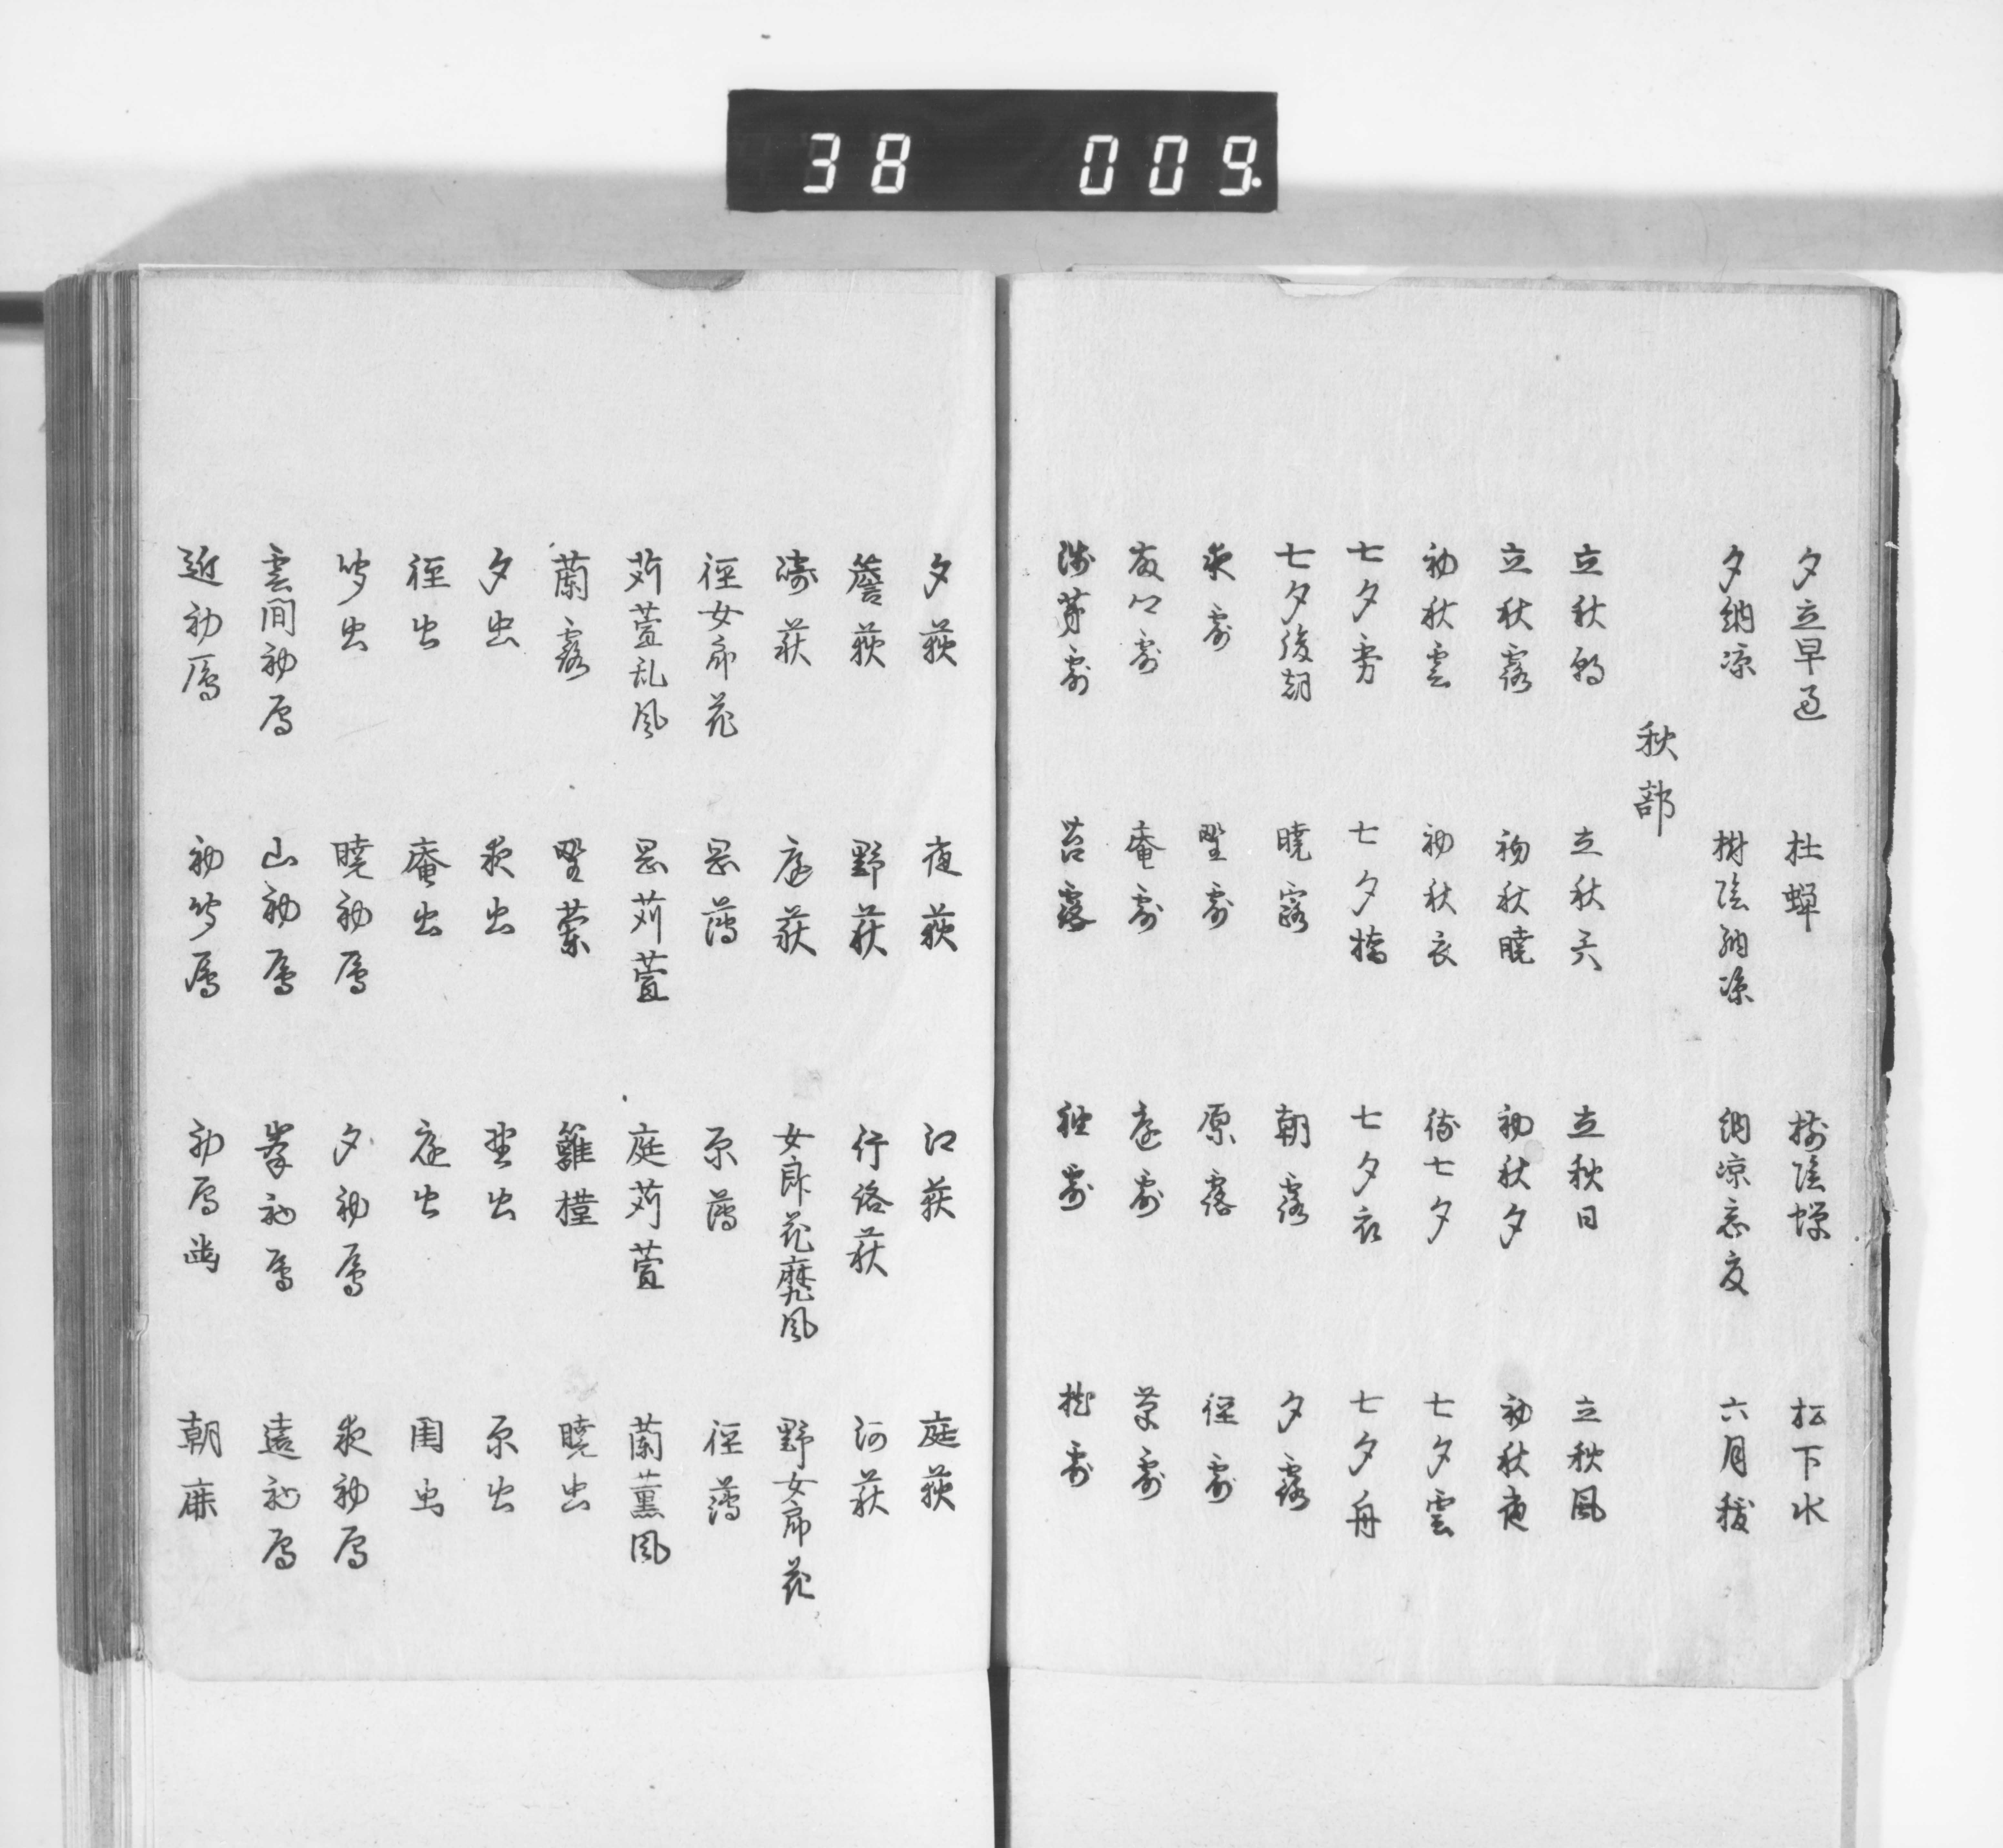 38 009
夕立早過 杜蝉 樹陰蝉 松下水
夕納凉 樹陰納凉 納凉忘夏 六月祓
秋部
立秋朝 立秋天 立秋日 立秋風
立秋露 初秋暁 初秋夕 初秋夜
初秋雲 初秋衣 待七夕 七夕雲
七夕雰 七夕橋 七夕衣 七夕舟
七夕後朝 暁露 朝露 夕露
夜露 野露 原露 径露
庵露 庭露 草露
浅茅露 苔露 露
夕荻 夜荻 江荻 庭荻
簷荻 野萩 行路萩 河萩
萩 庭萩 女郎花靡風 野女郎花
径女郎花 岡薄 原薄 径薄
苅萱乱風 岡苅萱 庭苅萱 蘭薫風
蘭露 野蘭 籬槿 暁虫
夕虫 夜虫 野虫 原虫
径虫 庵虫 庭虫 閨虫
虫 暁初鴈 夕初鴈 夜初鴈
雲間初鴈 山初鴈 峯初鴈 遠初鴈
近初鴈 初鴈 初鴈幽 朝鹿